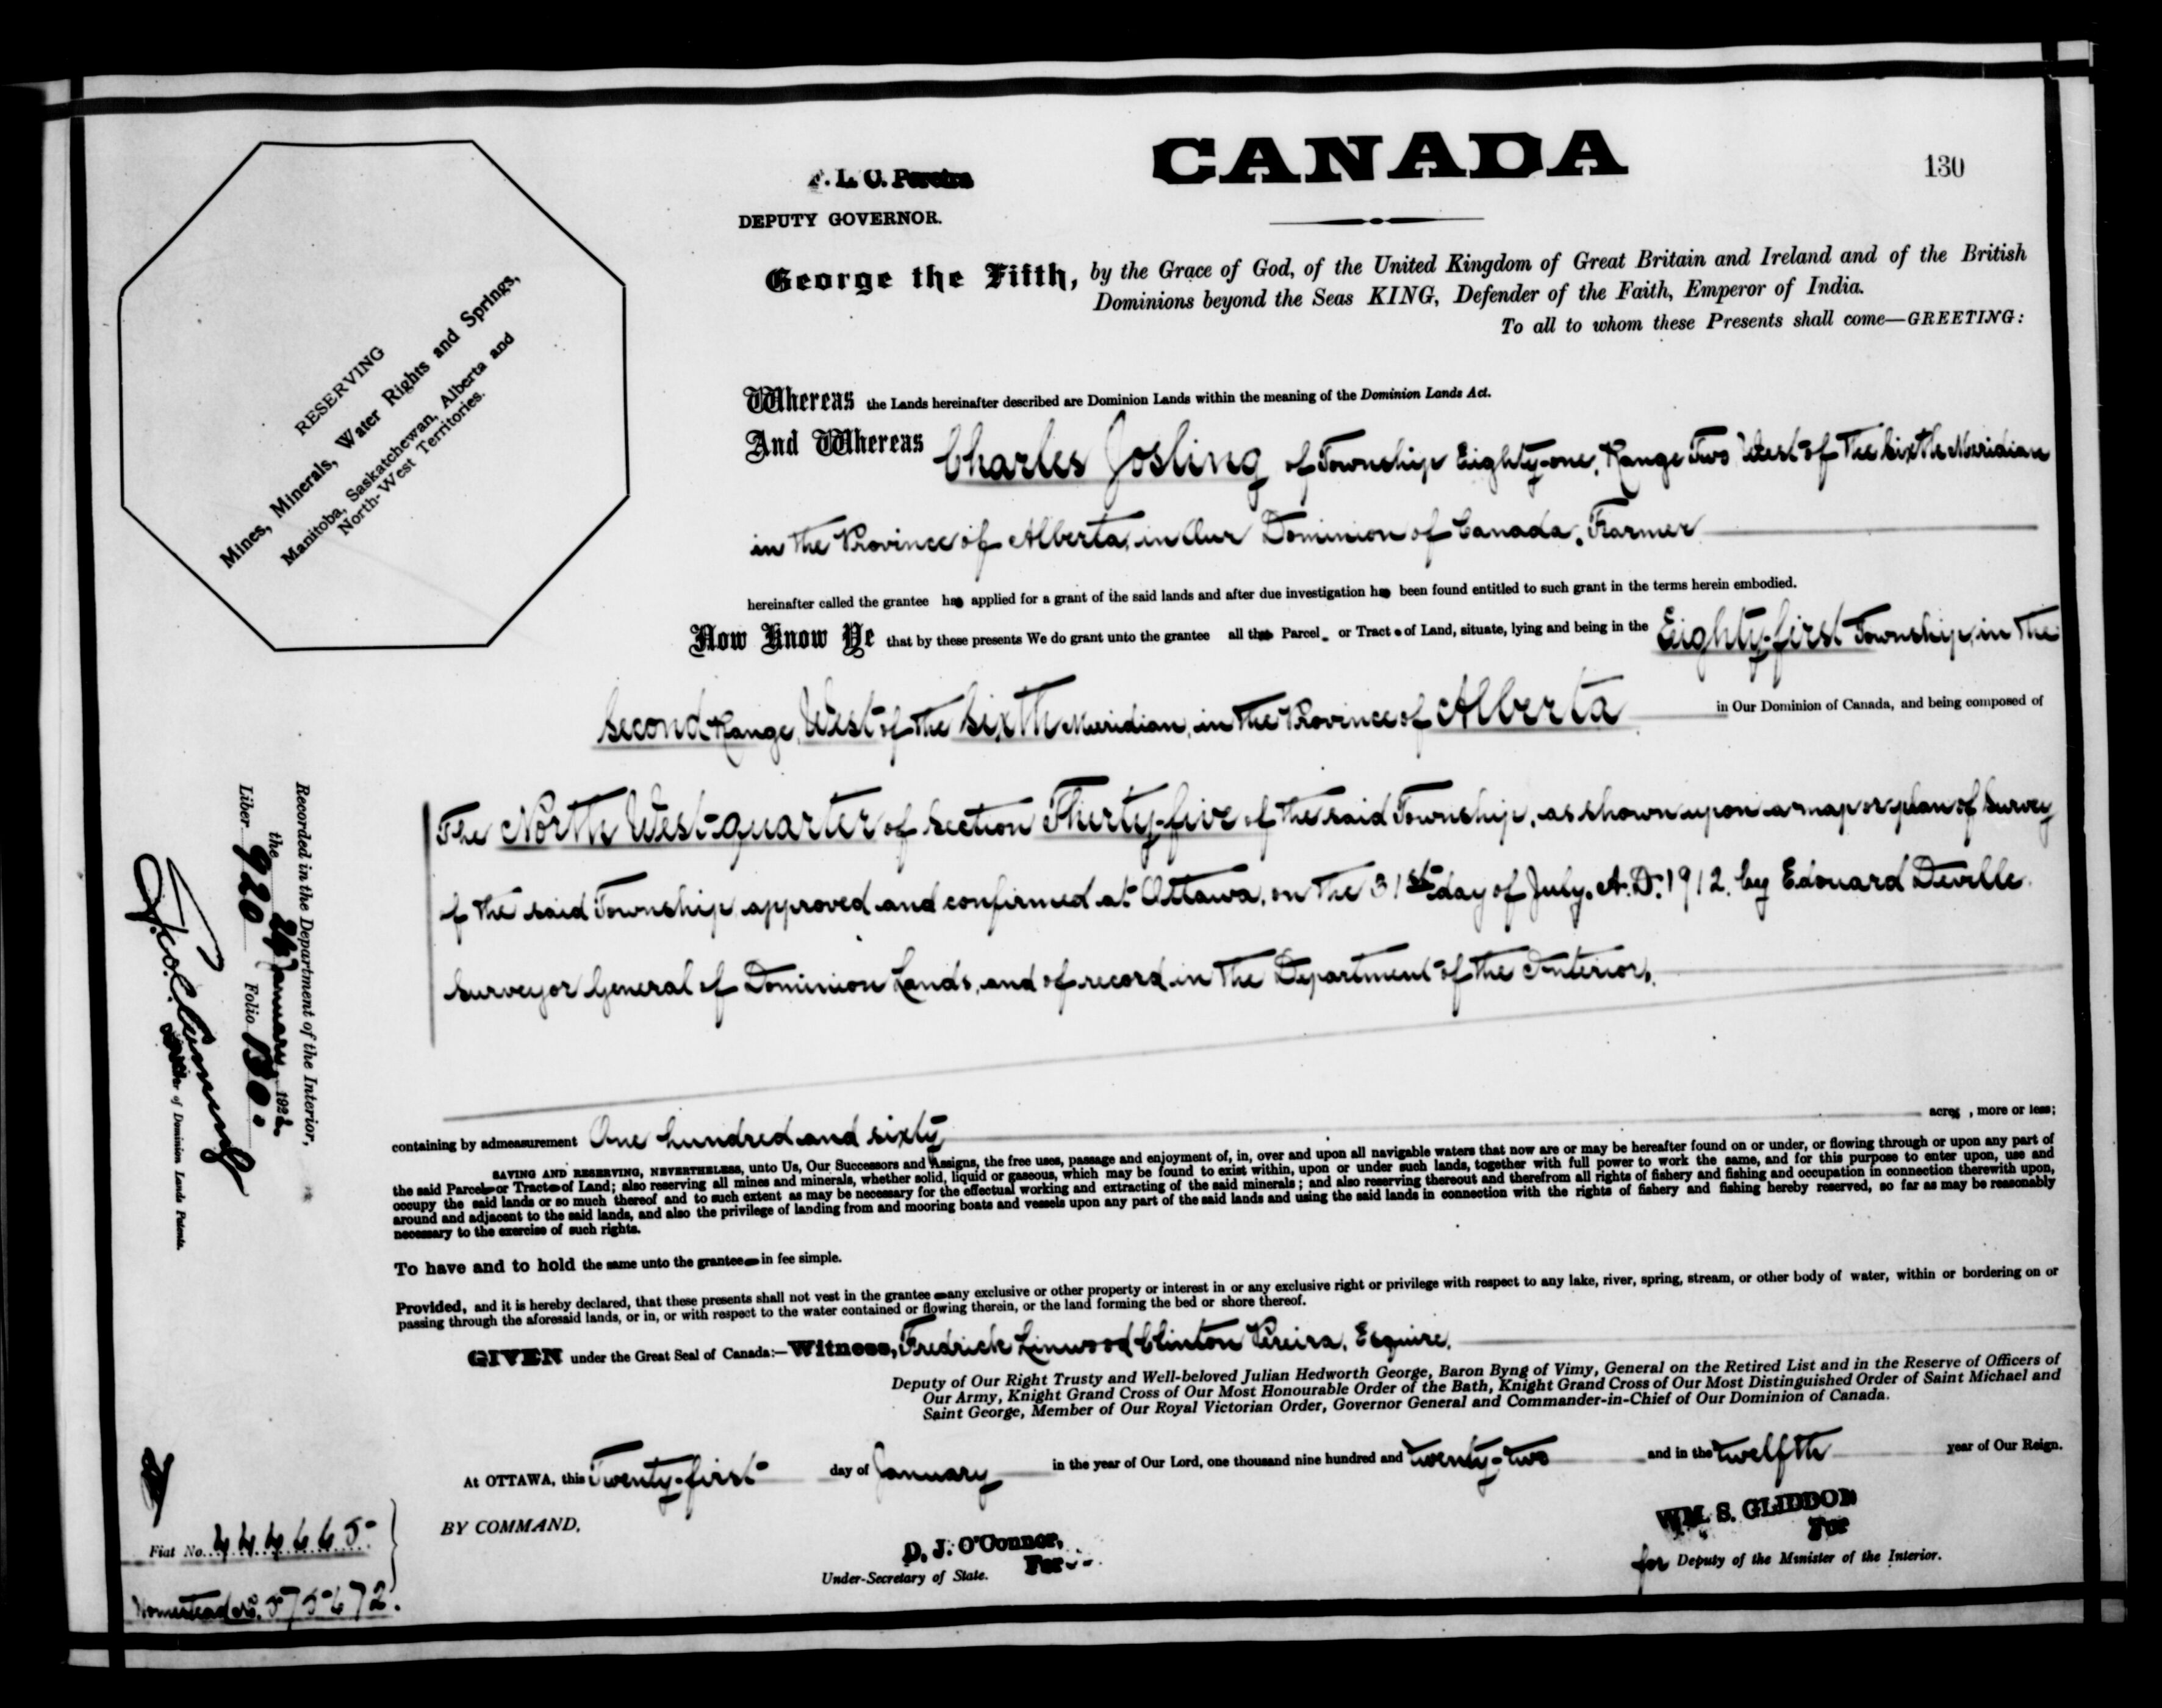 CANADA
130
F. L. C. Pereira
DEPUTY GOVERNOR.
George the Fifth, by the Grace of God, of the United Kingdom of Great Britain and Ireland and of the British
Dominions beyond the Seas KING, Defender of the Faith, Emperor of India.
To all to whom these Presents shall come—GREETING:
RESERVING
Mines, Minerals, Water Rights and Springs,
Manitoba, Saskatchewan, Alberta and
North-West Territories.
Whereas the Lands hereinafter described are Dominion Lands within the meaning of the Dominion Lands Act.
And Whereas Charles Josling of Township Eighty-one, Range Two West of The Sixth Meridian
in the Province of Alberta, in Our Dominion of Canada, Farmer
hereinafter called the grantee has applied for a grant of the said lands and after due investigation has been found entitled to such grant in the terms herein embodied.
Now Know Ye that by these presents We do grant unto the grantee all that Parcel or Tract of Land, situate, lying and being in the Eighty-first Township, in The
Second Range, West of the Sixth Meridian, in the Province of Alberta in Our Dominion of Canada, and being composed of
The North West-quarter of Section Thirty-five of the said Township, as shown upon a map or plan of Survey
of the said Township approved and confirmed at Ottawa, on the 31st day of July, A.D. 1912, by Edouard Deville
Surveyor General of Dominion Lands, and of record in the Department of the Interior,
containing by admeasurement One hundred and sixty acres, more or less;
SAVING AND RESERVING, NEVERTHELESS, unto Us, Our Successors and Assigns, the free uses, passage and enjoyment of, in, over and upon all navigable waters that now are or may be hereafter found on or under, or flowing through or upon any part of
the said Parcel or Tract of Land; also reserving all mines and minerals, whether solid, liquid or gaseous, which may be found to exist within, upon or under such lands, together with full power to work the same, and for this purpose to enter upon, use and
occupy the said lands or so much thereof and to such extent as may be necessary for the effectual working and extracting of the said minerals; and also reserving thereout and therefrom all rights of fishery and fishing and occupation in connection therewith upon,
around and adjacent to the said lands, and also the privilege of landing from and mooring boats and vessels upon any part of the said lands and using the said lands in connection with the rights of fishery and fishing hereby reserved, so far as may be reasonably
necessary to the exercise of such rights.
To have and to hold the same unto the grantee in fee simple.
Provided, and it is hereby declared, that these presents shall not vest in the grantee any exclusive or other property or interest in or any exclusive right or privilege with respect to any lake, river, spring, stream, or other body of water, within or bordering on or
passing through the aforesaid lands, or in, or with respect to the water contained or flowing therein, or the land forming the bed or shore thereof.
GIVEN under the Great Seal of Canada:—Witness, Fredrick Linwood Clinton Pereira, Esquire,
Deputy of Our Right Trusty and Well-beloved Julian Hedworth George, Baron Byng of Vimy, General on the Retired List and in the Reserve of Officers of
Our Army, Knight Grand Cross of Our Most Honourable Order of the Bath, Knight Grand Cross of Our Most Distinguished Order of Saint Michael and
Saint George, Member of Our Royal Victorian Order, Governor General and Commander-in-Chief of Our Dominion of Canada.
At OTTAWA, this Twenty-first day of January in the year of Our Lord, one thousand nine hundred and twenty-two and in the twelfth year of Our Reign.
BY COMMAND,
D. J. O'Connor,
For
Under-Secretary of State.
WM. S. GLIDDON
For
for Deputy of the Minister of the Interior.
Recorded in the Department of the Interior,
the January 1922
Liber 920 Folio 130.
of Dominion Lands Patents.
Fiat No. 444665
Homestead No. 575672.